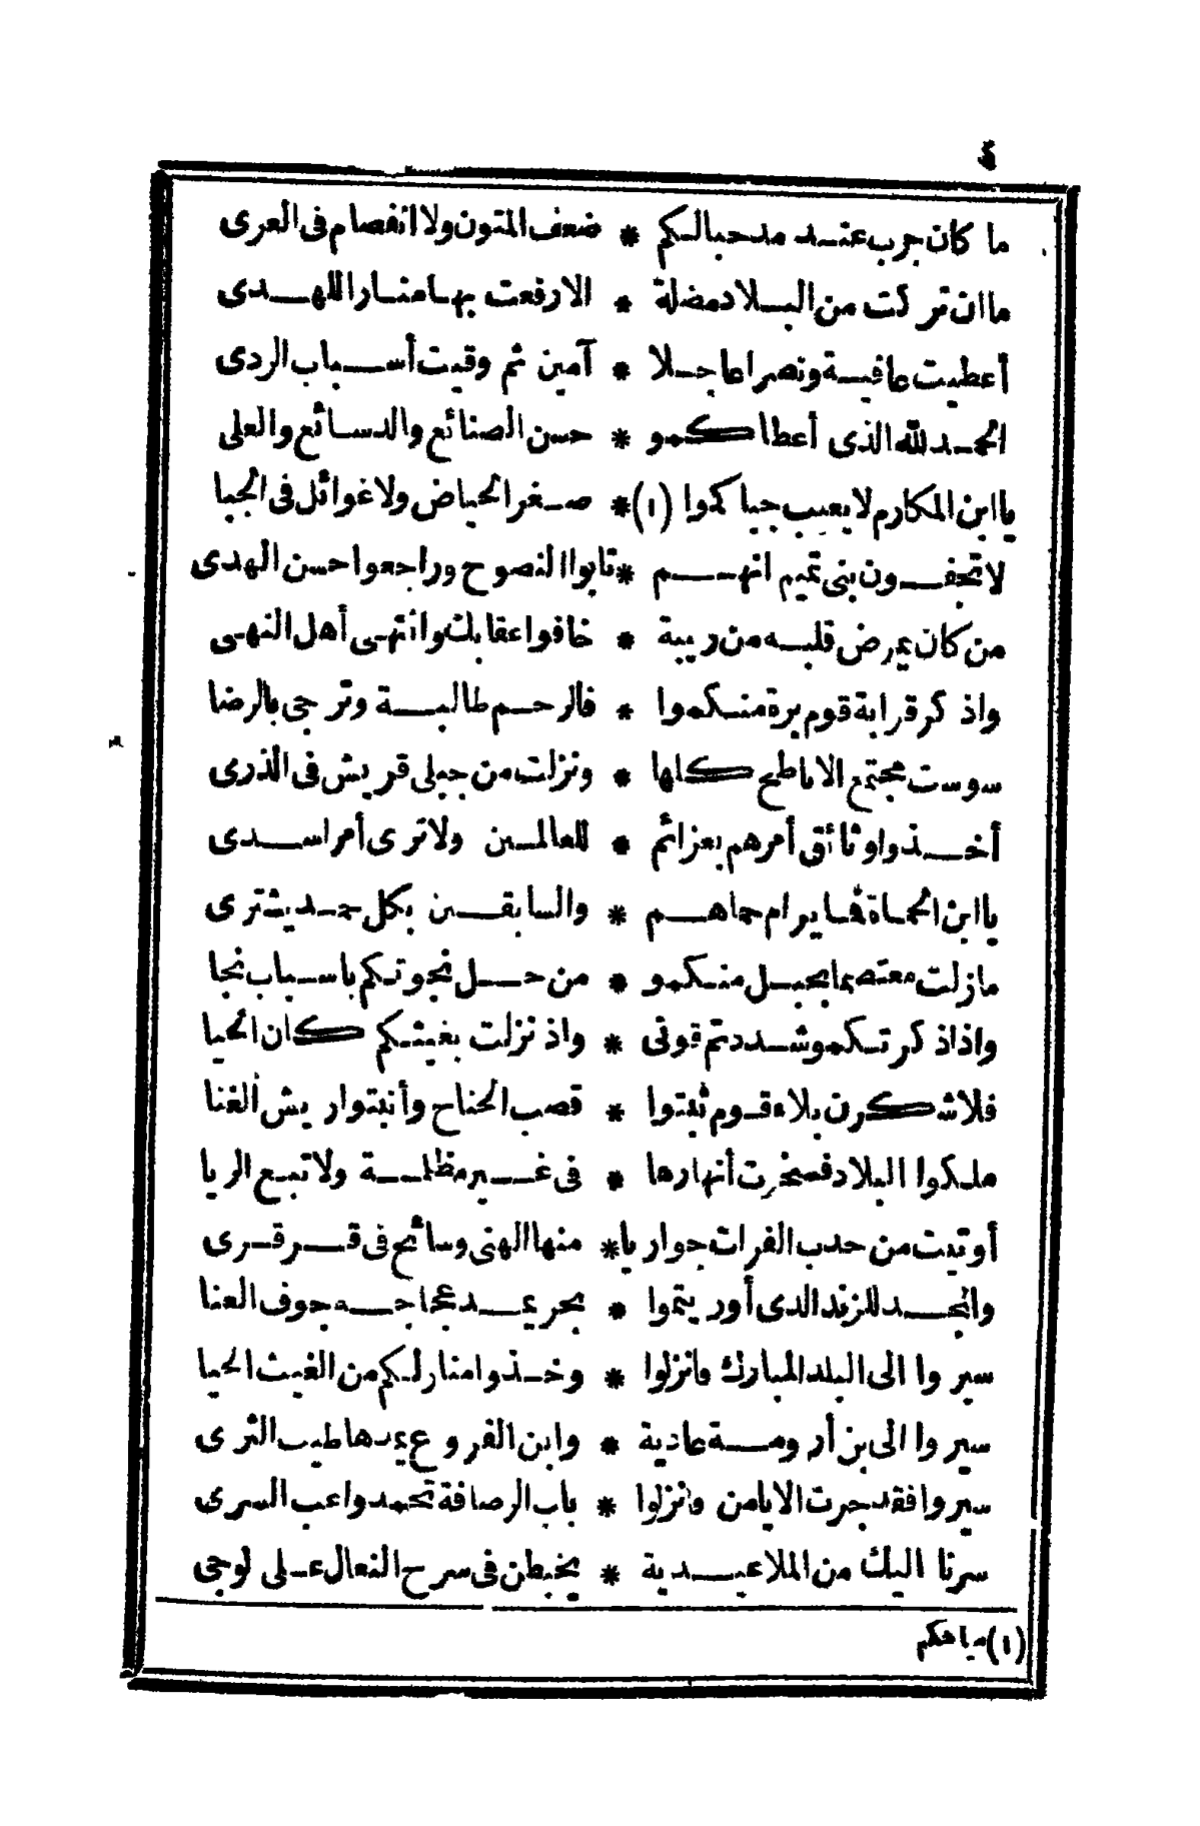 ٤
ما كان جرب عند مد حبالكم * ضعف المتون ولا انفصام فى العرى
ما ان تركت من البلاد مضلة * الا رفعت بها منارا للهدى
أعطيت عافية ونصرا عاجلا * آمين ثم وقيت أسباب الردى
الحمد لله الذى أعطاكمو * حسن الصنائع والدسائع والعلى
يا ابن المكارم لا يعيب جباكموا (١) * صغر الحياض ولا غوائل فى الجبا
لا تجفون بنى تميم انهم * تابوا النصوح وراجعوا حسن الهدى
من كان يمرض قلبه من ريبة * خافوا عقابك وانتهى أهل النهى
واذكر قرابة قوم برة منكموا * فالرحم طالبة وترجى بالرضا
سوست مجتمع الاباطح كلها * ونزلت من جبلى قريش فى الذرى
أخذوا وثائق أمرهم بعزائم * للعالمين ولا ترى أمر اسدى
يا ابن الحماة فما يرام حماهم * والسابقين بكل حمد يشترى
مازلت معتصما بحبل منكمو * من حل نجوتكم باسباب نجا
واذا ذكرتكمو شددتم قوتى * واذ نزلت بغيثكم كان الحيا
فلاشكرن بلاء قوم ثبتوا * قصب الجناح وأنبتوا ريش الغنا
ملكوا البلاد فسخرت أنهارها * فى غير مظلمة ولا تبع الريا
أوتيت من حدب الفرات جواريا * منها الهنى وسائح فى قرقرى
والمجد للزند الدى أوريتموا * بحر يمد عجاجه جوف العنا
سيروا الى البلد المبارك فانزلوا * وخذوا منازلكم من الغيث الحيا
سيروا الى بن أرومة عادية * وابن الفروع يمدها طيب الثرى
سيروا فقد جرت الايامن وانزلوا * باب الرصافة تحمدوا غب السرى
سرنا اليك من الملا عيدية * يخبطن فى سرح النعال على لوجى
(١) مياهكم